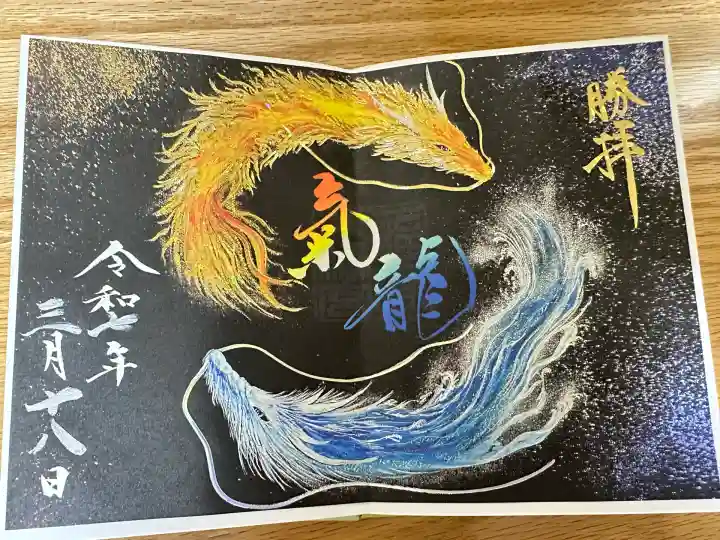 勝拝
氣龍
令和七年
三月十八日